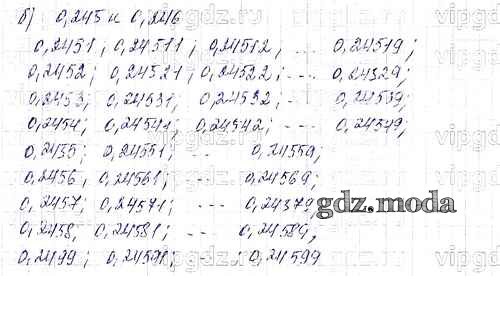 б) 0,245 и 0,246
0,2451; 0,24511; 0,24512; ... 0,24519;
0,2452; 0,24521; 0,24522; ... 0,24529;
0,2453; 0,24531; 0,24532; ... 0,24539;
0,2454; 0,24541; 0,24542; ... 0,24549;
0,2455; 0,24551; ... 0,24559;
0,2456, 0,24561; ... 0,24569;
0,2457; 0,24571; ... 0,24579
gdz.moda
0,2458, 0,24581; ... 0,24589,
0,2499; 0,24591; ... 0,24599
vipgdz.ru